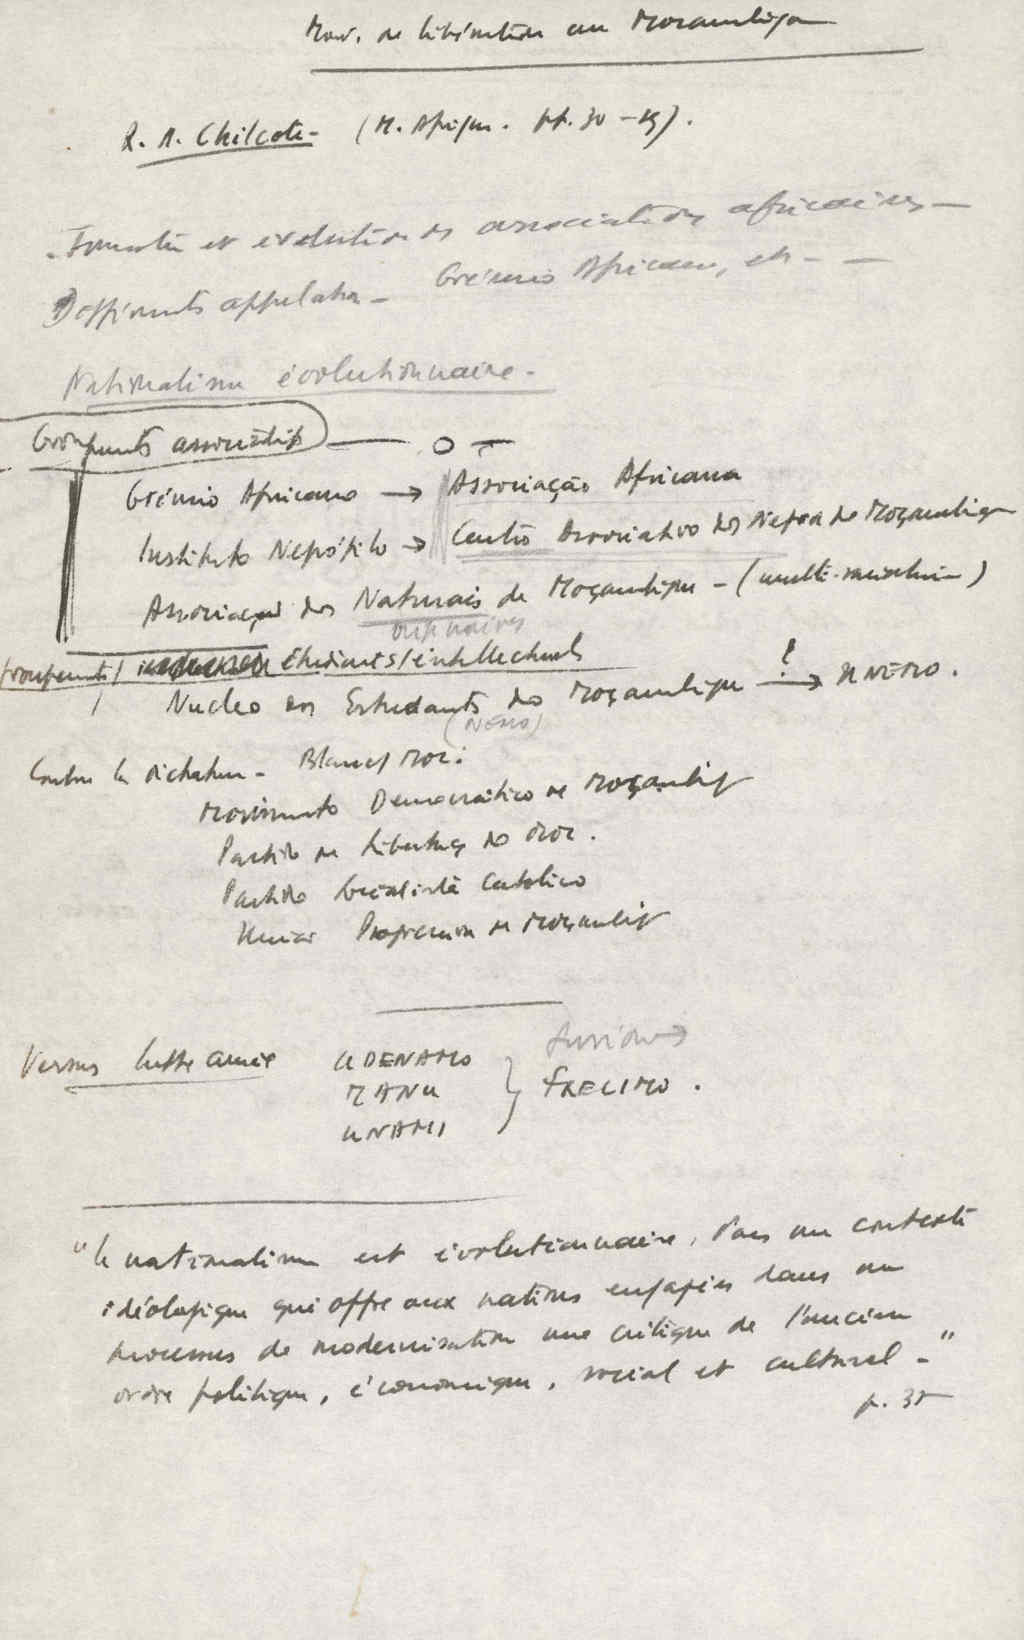 Mov. de libération au Mozambique
R. A. Chilcote - (M. Afrique. pp. 30 - ).
- Formation et évolution des associations africaines -
Différents appelation - Grémio Africano, etc - -
Nationalisme évolutionnaire -
Groupements associatifs — o —
Grémio Africano → Associação Africana
Instituto Negrófilo → Centro Associativo dos Negros de Moçambique
Associaçao dos Naturais de Moçambique - (multi-raciale)
originaires
Groupements / étudiants/intellectuels
Nucleo dos Estudants de Moçambique → ? UNEMO.
(NESO)
Contre la dictature - Blancs Moz:
Movimento Democrático de Moçambiq
Partido de libertaç de Moz.
Partido Socialista Catolico
Uniao Progressiva de Moçambiq
Versus lutte armée UDENAMO
fusion →
MANU } FRELIMO.
UNAMI
"le nationalisme est évolutionnaire, dans un contexte
idéologique qui offre aux nations engagées dans un
processus de modernisation une critique de l'ancien
ordre politique, économique, social et culturel -"
p. 35